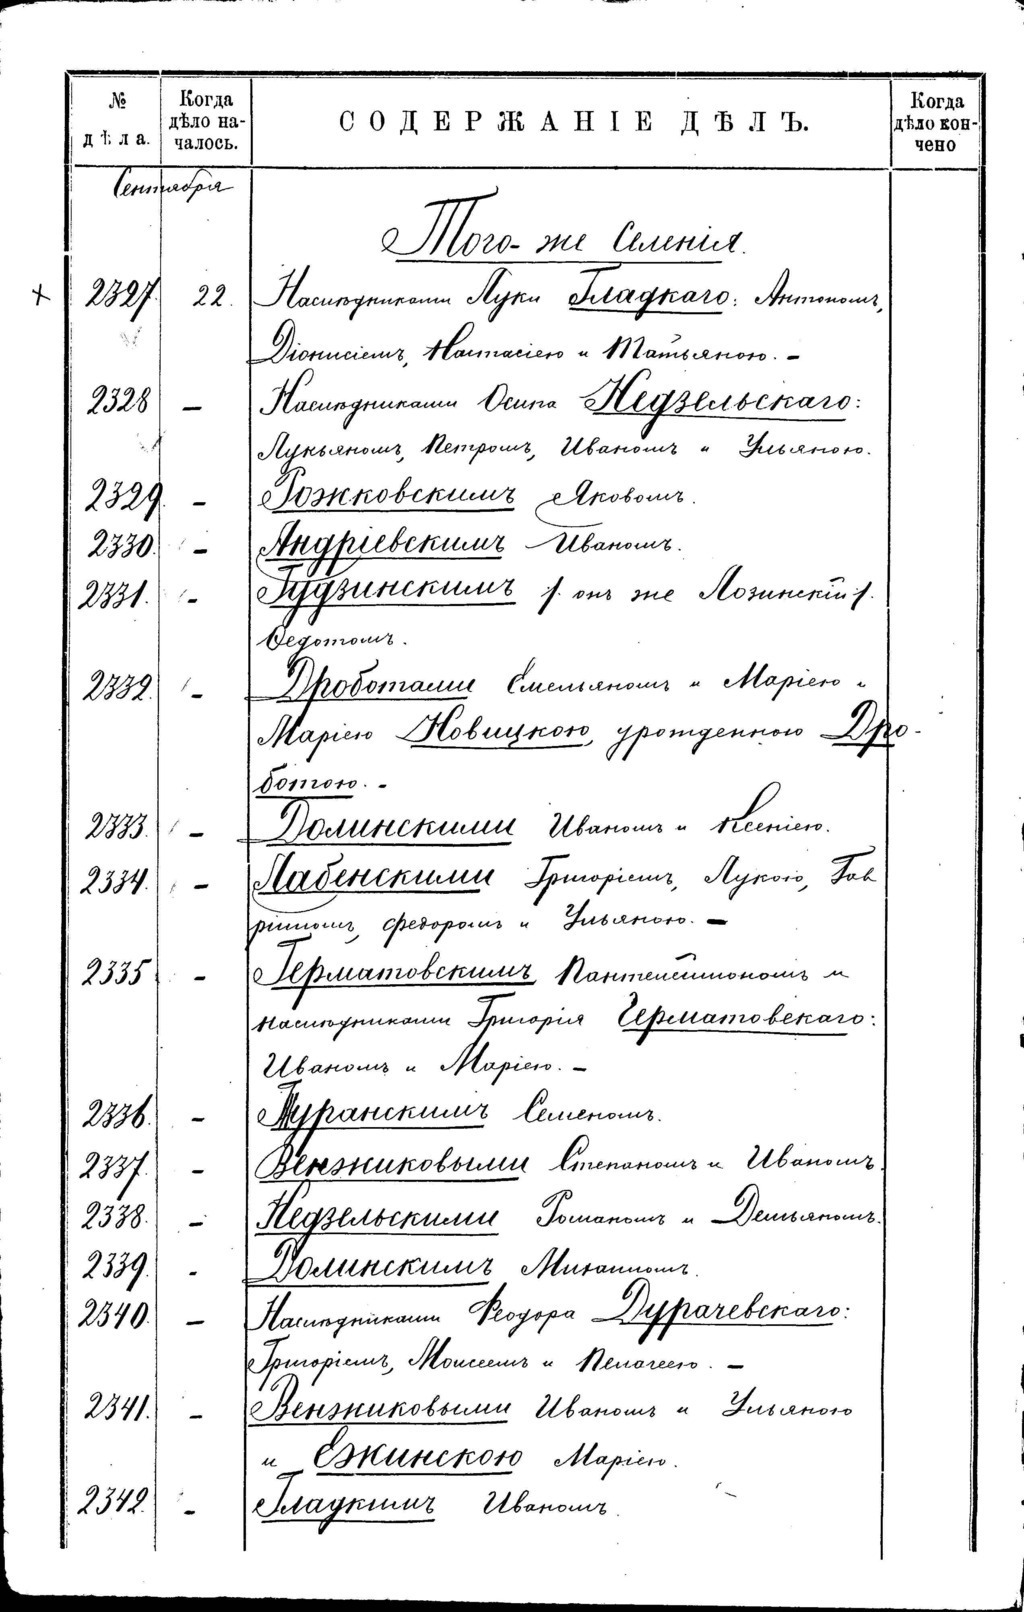 № дѣла.
Когда дѣло началось.
СОДЕРЖАНІЕ ДѢЛЪ.
Когда дѣло кончено
Сентября
Того-же Селенія.
+ 2327. 22. Наслѣдниками Луки Гладкаго: Антономъ,
Діонисіемъ, Настасіею и Татьяною. –
2328 – Наслѣдниками Осипа Недзельскаго:
Лукьяномъ, Петромъ, Иваномъ и Ульяною.
2329. – Рожковскимъ Яковомъ.
2330. – Андріевскимъ Иваномъ.
2331. – Гудзинскимъ /. онъ же Лозинскій /.
Ѳедотомъ.
2332. – Дроботами Емельяномъ и Маріею и
Маріею Новицкою, урожденною Дро-
ботою. –
2333. – Долинскими Иваномъ и Ксеніею.
2334. – Лабенскими Григоріемъ, Лукою, Гав
ріиломъ, Федоромъ и Ульяною. –
2335 – Герматовскимъ Пантелеимономъ и
наслѣдниками Григорія Герматовскаго:
Иваномъ и Маріею. –
2336. – Туранскимъ Семеномъ.
2337. – Венжиковыми Степаномъ и Иваномъ.
2338. – Недзельскими Романомъ и Демьяномъ.
2339. – Долинскимъ Михаиломъ.
2340. – Наслѣдниками Ѳеодора Дурачевскаго:
Григоріемъ, Моисеемъ и Пелагеею. –
2341. – Венжиковыми Иваномъ и Ульяною
и Ежинскою Маріею.
2342. – Гладкимъ Иваномъ.